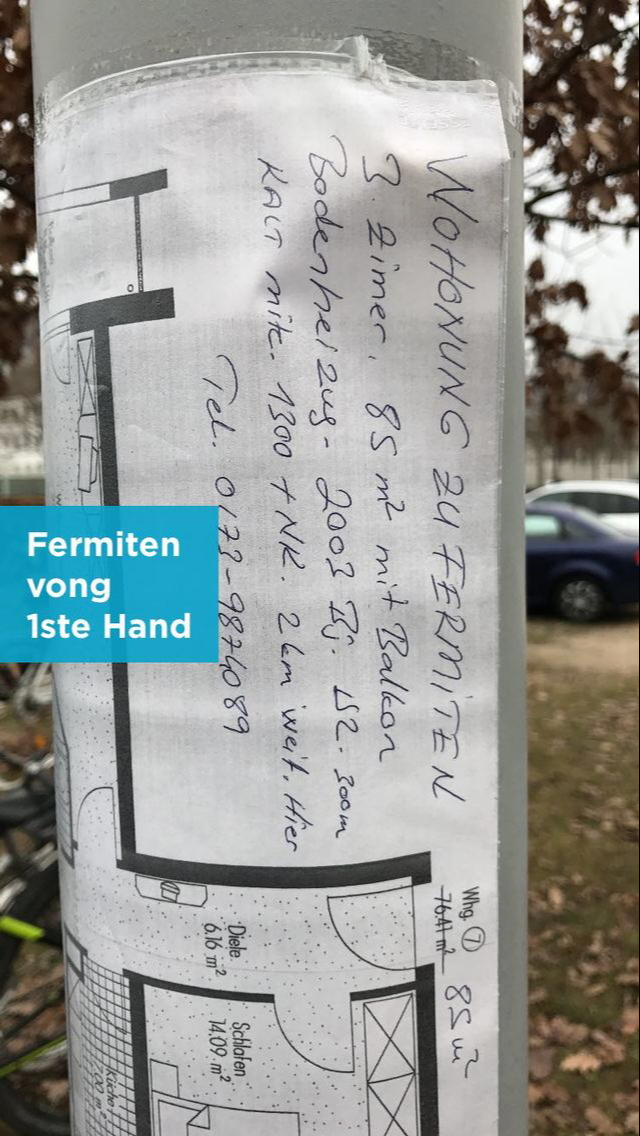 WOHONUNG ZU FERMiTEN
3. Zimer. 85 m² mit Balkon
Bodenheizug- 2003 Bj. 300m
KALT mitc. 1300 + NK. 2 km weit. Hier
Tel. 0173-9874089
Fermiten
vong
1ste Hand
Whg. 7
76.41 m² 85 m²
Diele
6.16 m²
Schlafen
14.09 m²
Küche
7.00 m²